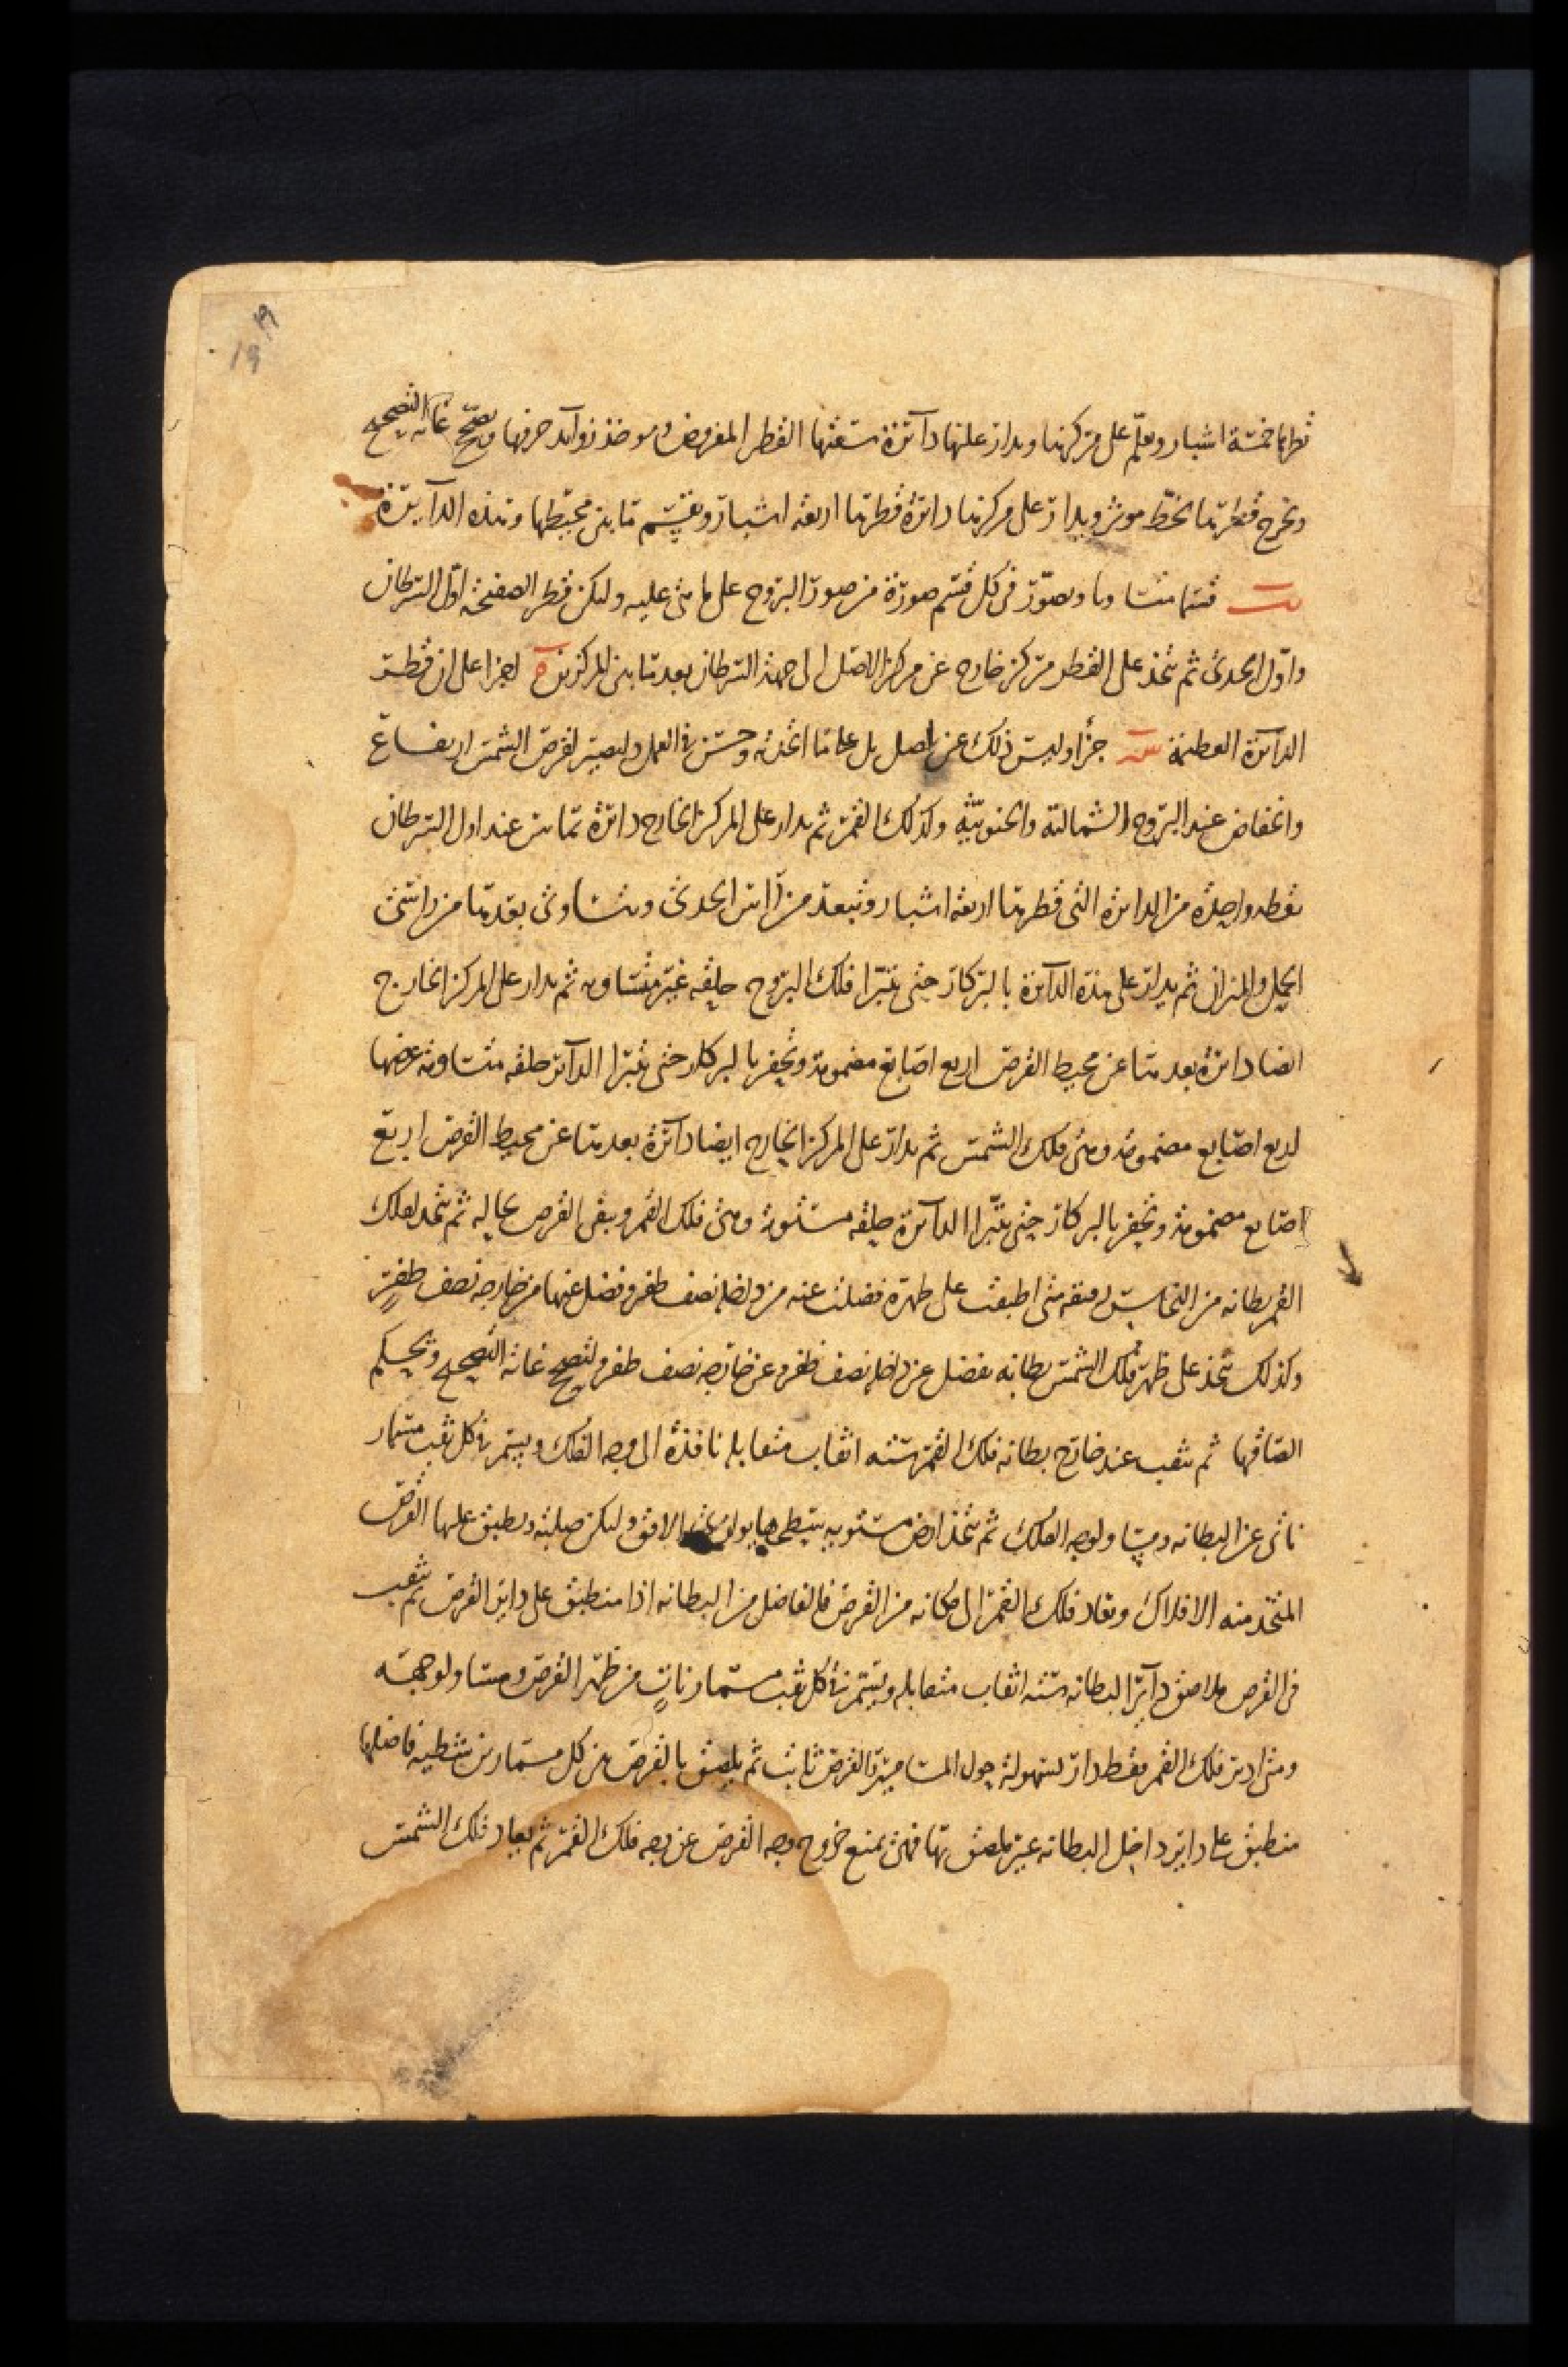 قطرها خمسة اشبار ويعلم على مركزها ويدار عليها دائرة سعتها القطر المفروض ويوخذ زوايد حرفها ويصحح غاية التصحيح
ويخرج قطرها بخط موثر ويدار على مركزها دائرة قطرها اربعة اشبار ويقسم ما بين محيطها وهذه الدايرة
قسما متساويا ويصور في كل قسم صورة من صور البروج على ما هي عليه وليكن قطر الصفيحة اول السرطان
واول الجدي ثم يتخذ على القطر مركز خارج عن مركز الاصل الى جهة السرطان بعد ما بين المركزين ه اجزا على ان قطر
الدائرة العظيمة جزا وليس ذلك عن اصل بل على ما اتخذته وحسن في العمل وليصير لقرص الشمس ارتفاع
وانخفاض عند البروج الشمالية والجنوبية وكذلك القمر ثم يدار على المركز الخارج دائرة تماس عند اول السرطان
نقطه واحدة من الدائرة التي قطرها اربعة اشبار وتبعد من راس الجدي ويتساوى بعدها من راسي
الحمل والميزان ثم يدار على هذه الدائرة بالبركار حتى يتبرا فلك البروج حلقه غير متساويه ثم يدار على المركز الخارج
ايضا دائرة بعدها عن محيط القرص اربع اصابع مضمومة ويحفر بالبركار حتى يتبرا الدائر حلقه متساويه عرضها
اربع اصابع مضمومة وهي فلك الشمس ثم يدار على المركز الخارج ايضا دائرة بعدها عن محيط القرص اربع
اصابع مضمومة ويحفر بالبركار حتى يتبرا الدائرة حلقه مستوية وهي فلك القمر ويبقى القرص بحاله ثم يتخذ لفلك
القمر بطانه من النحاس رقيقه متى اطبقت على ظهره فضلت عنه من داخله نصف ظفر وفضل عنها من خارجه نصف ظفر
وكذلك يتخذ على ظهر فلك الشمس بطانه تفضل عن داخله نصف ظفر وعن خارجه نصف ظفر ولتصحح غاية التصحيح ويحكم
الصاقها ثم يثقب عند خارج بطانه فلك القمر ستة اثقاب متقابلة نافذة الى وجه الفلك ويسمر في كل ثقب مسمار
ناتي عن البطانه ومساو لوجه الفلك ثم يتخذ ارض مستويه الافق ولتكن صلبة ويطبق عليها القرص
المتخذ منه الافلاك ويعاد فلك القمر الى مكانه من القرص فالفاضل من البطانه اذا منطبق على داير القرص ثم يثقب
في القرص ملاصق داير البطانه ستة اثقاب متقابلة ويسمر في كل ثقب مسمار نات من ظهر القرص ومساو لوجهه
ومتى ادير فلك القمر فقط دار بسهولة حول المسامير والقرص ثابت ثم يلصق بالقرص بين كل مسمارين شظيه فاضلها
منطبق على داير داخل البطانه غير ملصق بها فهي تمنع خروج وجه القرص عن وجه فلك القمر ثم يعاد فلك الشمس